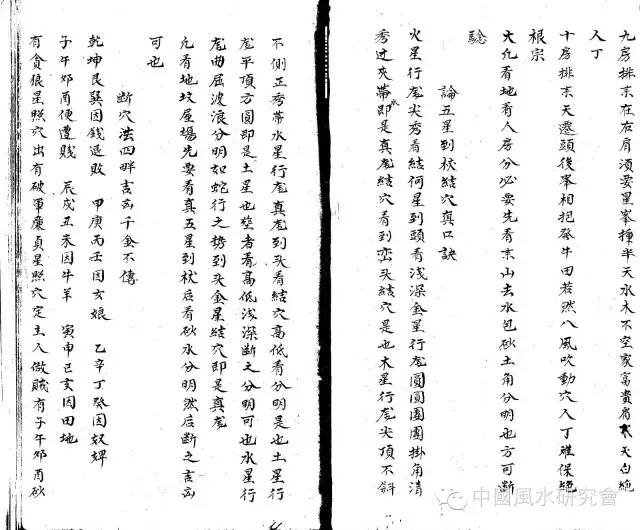 九房排來在右肩須要星峯揷半天水木不空家富貴有　天白絶
人丁
十房排來天邊頭後峯相抱發牛田若然八風吹動穴人丁難保絶
根宗
大凢看地看人房分必要先看來山去水包砂土角分明也方可断
驗
論五星到穴結穴真口訣
火星行龙尖秀看結何星到頭看浅深金星行龙圓圓團團掛角清
秀过夾帶水即是真龙結穴看到峦头結穴是也木星行龙尖頂不斜
不側正秀帶水星行龙真龙到头看結穴高低看分明是也土星行
龙平頂方圓即是土星也堅者看高低浅深断之分明可也水星行
龙曲屈波浪分明如蛇行之势到头金星結穴即是真龙
凢看地坟屋場先要看真五星到　后看砂水分明然后断之吉凶
可也
断穴法四畔吉凶千金不傳
乾坤艮巽因錢退敗　甲庚丙壬因女娘　乙辛丁癸因奴婢
子午卯酉便遭賤　辰戌丑未因牛羊　寅申巳亥因田地
有貪狼星照穴出有破軍廉貞星照穴定主人做賊有子午卯酉砂
中國風水研究會